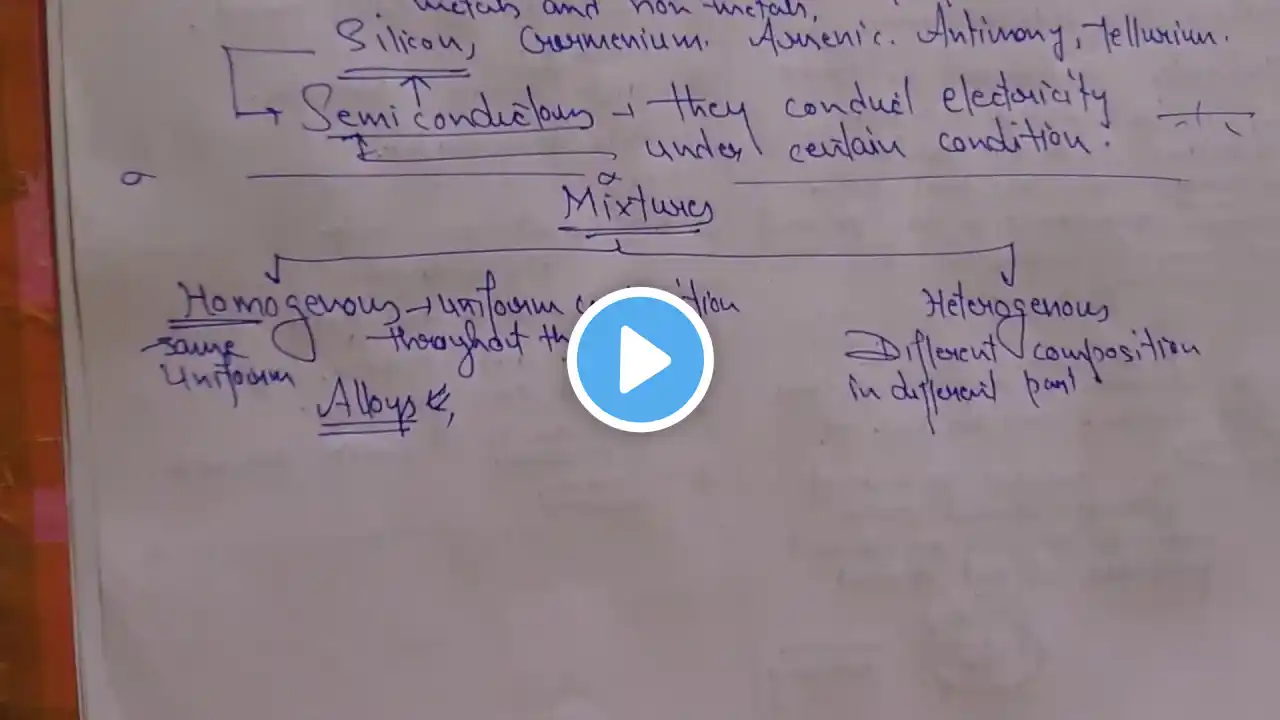 metals and non-metals.
Silicon, Germenium. Arsenic. Antimony, Tellurium.
Semiconductors → they conduct electricity
under certain condition.
Mixtures
Homogenous → uniform
throughout
same
Uniform
Alloys
Heterogenous
Different composition
in different part.